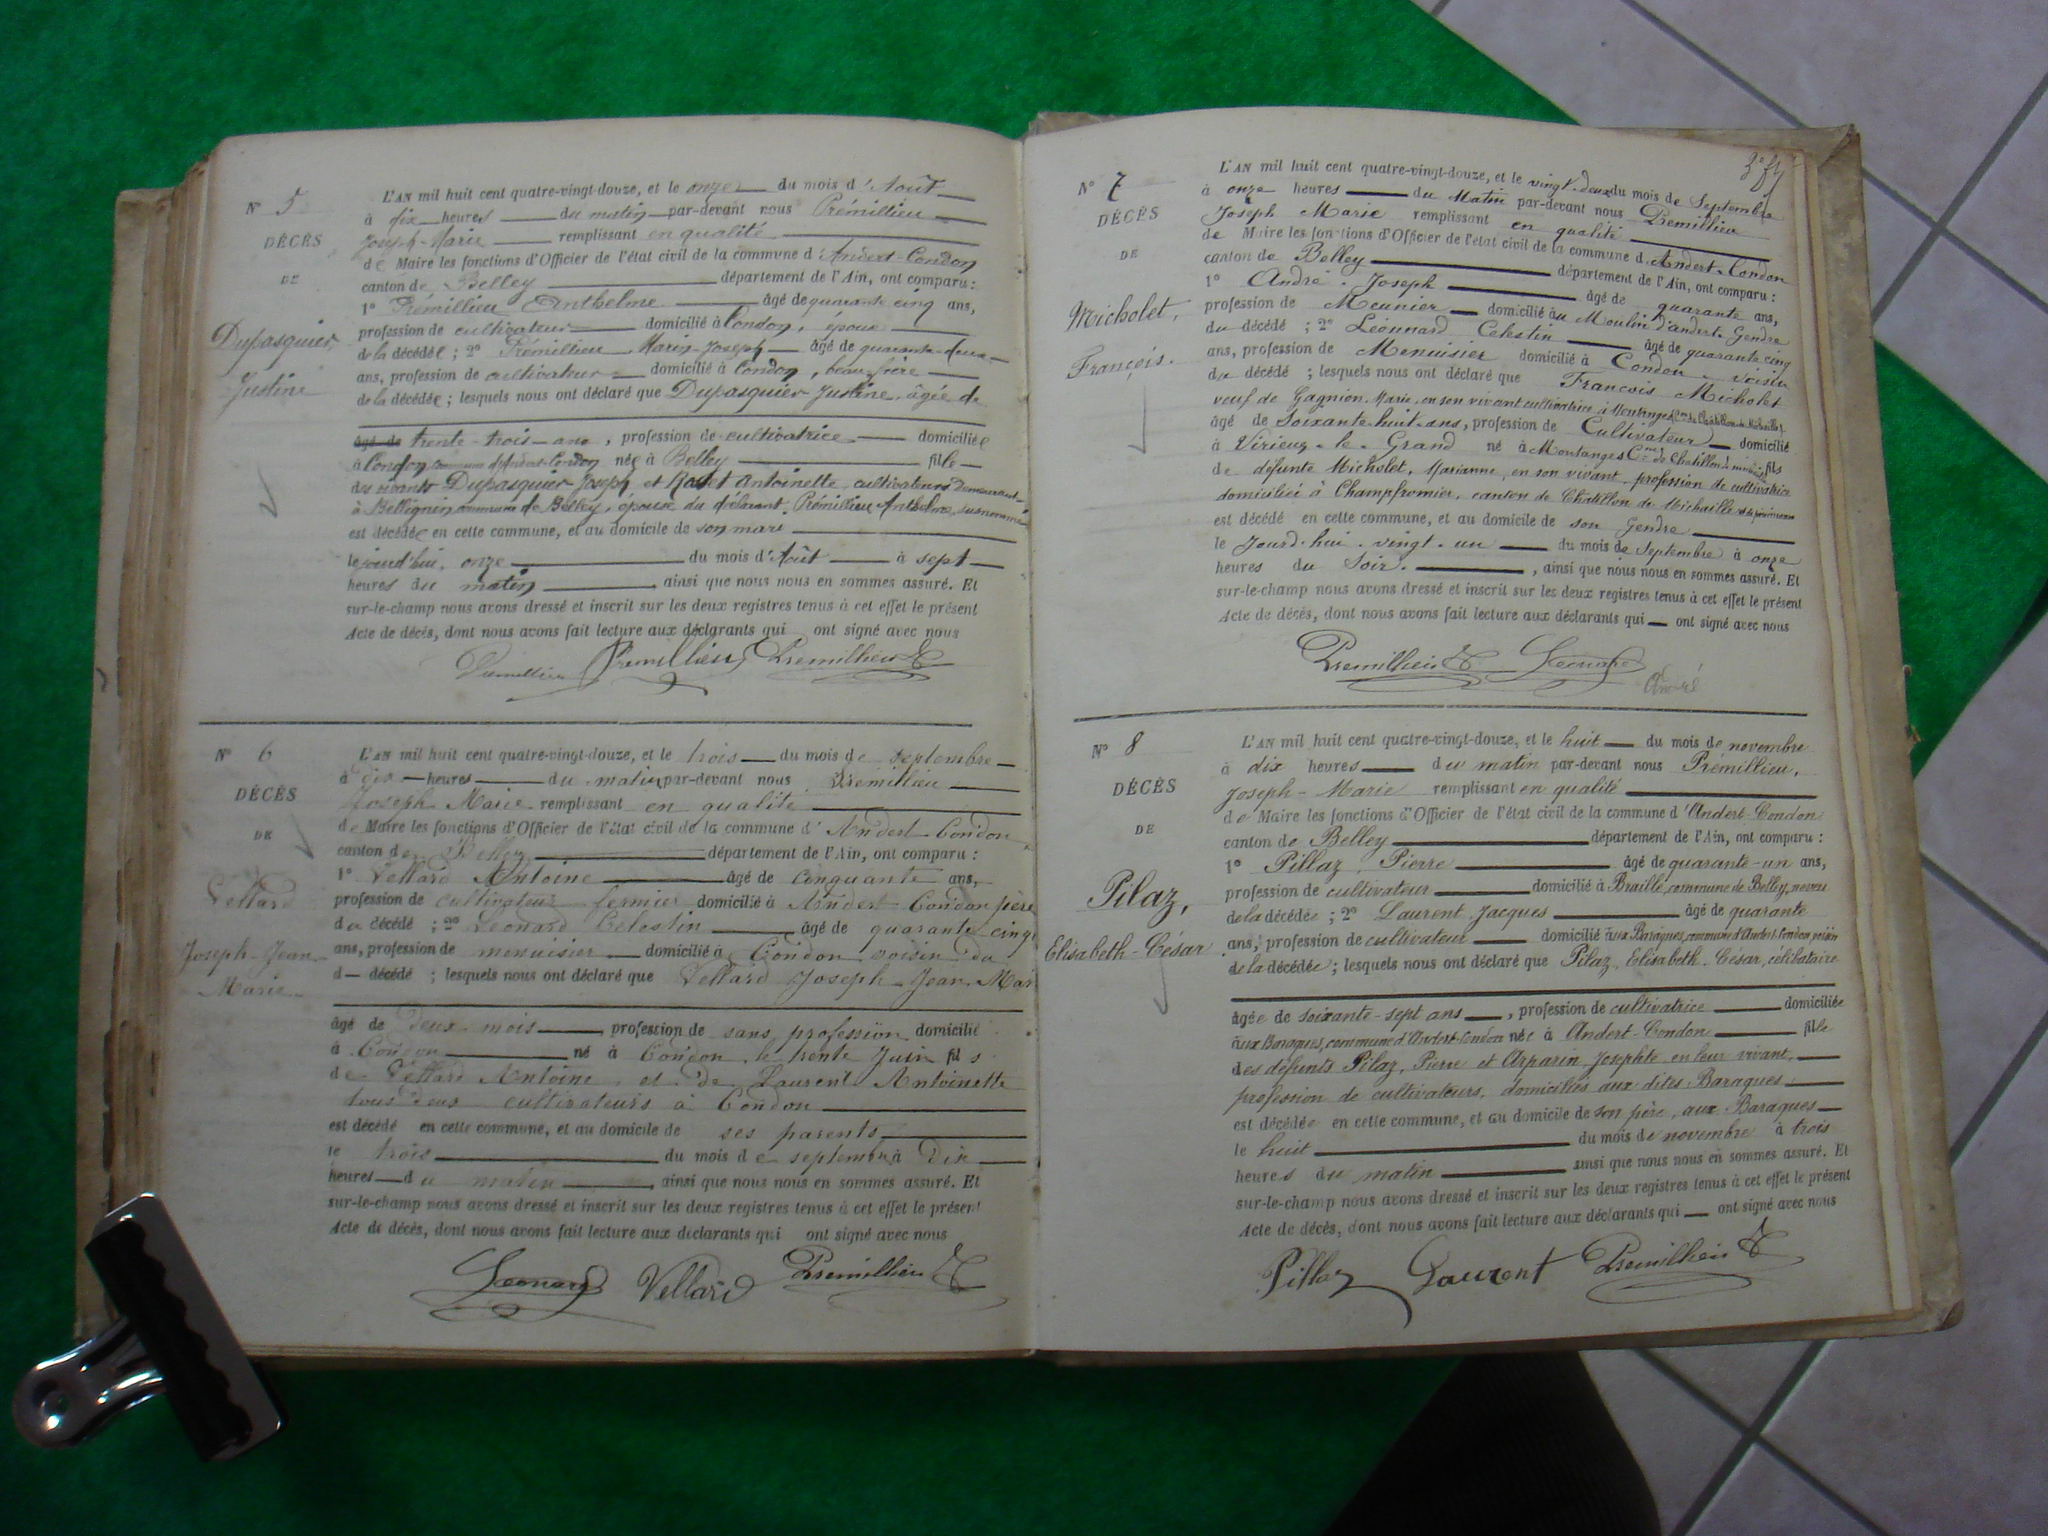 N° 5
DÉCÈS
DE
Dupasquier,
Justine
L'AN mil huit cent quatre-vingt-douze, et le onze du mois d'Août
à dix heures du matin par-devant nous Prémillieu
Joseph-Marie remplissant en qualité
de Maire les fonctions d'Officier de l'état civil de la commune d'Andert-Condon
canton de Belley département de l'Ain, ont comparu :
1° Prémillieu Anthelme âgé de quarante cinq ans,
profession de cultivateur domicilié à Condon, époux
de la décédée ; 2° Prémillieu Marin-Joseph âgé de quarante-deux
ans, profession de cultivateur domicilié à Condon, beau-frère
de la décédée ; lesquels nous ont déclaré que Dupasquier Justine, âgée de
âgé de trente-trois-ans, profession de cultivatrice domiciliée
à Condon commune d'Andert-Condon née à Belley fille
des vivants Dupasquier Joseph et Antoinette cultivateurs demeurant
à Bellignin commune de Belley, épouse du déclarant Prémillieu Anthelme, susnommé
est décédée en cette commune, et au domicile de son mari
le jourd'hui, onze du mois d'Août à sept
heures du matin, ainsi que nous nous en sommes assuré. Et
sur-le-champ nous avons dressé et inscrit sur les deux registres tenus à cet effet le présent
Acte de décès, dont nous avons fait lecture aux déclarants qui ont signé avec nous
Prémillieu Premillieu Premillieu
N° 6
DÉCÈS
DE
Vellard
Joseph-Jean-
Marie
L'AN mil huit cent quatre-vingt-douze, et le trois du mois de septembre
à dix heures du matin par-devant nous Premillieu
Joseph Marie remplissant en qualité
de Maire les fonctions d'Officier de l'état civil de la commune d'Andert-Condon
canton de Belley département de l'Ain, ont comparu :
1° Vellard Antoine âgé de cinquante ans,
profession de cultivateur fermier domicilié à Andert-Condon père
du décédé ; 2° Léonard Célestin âgé de quarante cinq
ans, profession de menuisier domicilié à Condon voisin du
d décédé ; lesquels nous ont déclaré que Vellard Joseph-Jean-Mar
âgé de deux mois, profession de sans profession domicilié
à Condon né à Condon le trente Juin fils
de Vellard Antoine et de Laurent Antoinette
tous deux cultivateurs à Condon
est décédé en cette commune, et au domicile de ses parents
le trois du mois de septembre à dix
heures du matin, ainsi que nous nous en sommes assuré. Et
sur-le-champ nous avons dressé et inscrit sur les deux registres tenus à cet effet le présent
Acte de décès, dont nous avons fait lecture aux déclarants qui ont signé avec nous
Léonard Vellard Premillieu
N° 7
DÉCÈS
DE
Micholet,
François.
L'AN mil huit cent quatre-vingt-douze, et le vingt-deux du mois de Septembre
à onze heures du Matin par-devant nous Premillieu
Joseph Marie remplissant en qualité
de Maire les fonctions d'Officier de l'état civil de la commune d'Andert-Condon
canton de Belley département de l'Ain, ont comparu :
1° André Joseph âgé de quarante ans,
profession de Meunier domicilié au Moulin d'andert Gendre
du décédé ; 2° Léonnard Celestin âgé de quarante cinq
ans, profession de Menuisier domicilié à Condon voisin
du décédé ; lesquels nous ont déclaré que François Micholet
veuf de Gagnion Marie, en son vivant cultivatrice à Montanges
âgé de Soixante-huit-ans, profession de Cultivateur domicilié
à Virieux-le-Grand né à Montanges fils
de défunte Micholet, Marianne, en son vivant, profession de cultivatrice
domiciliéé à Champfromier, canton de Chatillon de Michaille
est décédé en cette commune, et au domicile de son Gendre
le Jourd'hui vingt-un du mois de Septembre à onze
heures du Soir, ainsi que nous nous en sommes assuré. Et
sur-le-champ nous avons dressé et inscrit sur les deux registres tenus à cet effet le présent
Acte de décès, dont nous avons fait lecture aux déclarants qui ont signé avec nous
Premillieu Léonard
André
N° 8
DÉCÈS
DE
Pilaz,
Elisabeth-César
L'AN mil huit cent quatre-vingt-douze, et le huit du mois de novembre
à dix heures du matin par-devant nous Prémillieu,
Joseph-Marie remplissant en qualité
de Maire les fonctions d'Officier de l'état civil de la commune d'Andert-Condon
canton de Belley département de l'Ain, ont comparu :
1° Pillaz Pierre âgé de quarante-un ans,
profession de cultivateur domicilié à Braille, commune de Belley, neveu
de la décédée ; 2° Laurent Jacques âgé de quarante
ans, profession de cultivateur domicilié aux Baraques, commune d'Andert-Condon voisin
de la décédée ; lesquels nous ont déclaré que Pilaz, Elisabeth-César, célibataire
âgée de soixante-sept ans, profession de cultivatrice domiciliée
aux Baraques, commune d'Andert-Condon née à Andert-Condon fille
des défunts Pilaz, Pierre et Arparin, Josephte en leur vivant,
profession de cultivateurs, domiciliés aux dites Baraques
est décédée en cette commune, et au domicile de son père, aux Baraques
le huit du mois de novembre à trois
heures du matin ainsi que nous nous en sommes assuré. Et
sur-le-champ nous avons dressé et inscrit sur les deux registres tenus à cet effet le présent
Acte de décès, dont nous avons fait lecture aux déclarants qui ont signé avec nous
Pillaz Laurent Premillieu